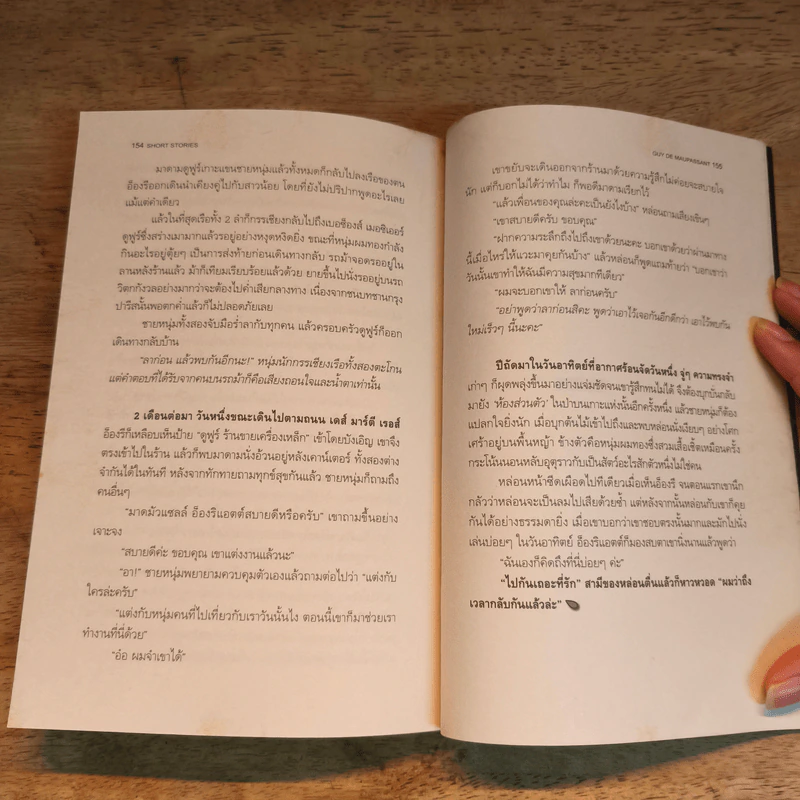 154 SHORT STORIES
มาดามดูฟูร์เกาะแขนชายหนุ่มแล้วทั้งหมดก็กลับไปลงเรือของตน
อ็องรีออกเดินนำเคียงคู่ไปกับสาวน้อย โดยที่ยังไม่ปริปากพูดอะไรเลย
แม้แต่คำเดียว
แล้วในที่สุดเรือทั้ง 2 ลำก็กรรเชียงกลับไปถึงเบอซ็องส์ เมอซิเออร์
ดูฟูร์ซึ่งสร่างเมามากแล้วรออยู่อย่างหงุดหงิดยิ่ง ขณะที่หนุ่มผมทองกำลัง
กินอะไรอยู่ตุ้ยๆ เป็นการส่งท้ายก่อนเดินทางกลับ รถม้าจอดรออยู่ใน
ลานหลังร้านแล้ว ม้าก็เทียมเรียบร้อยแล้วด้วย ยายขึ้นไปนั่งรออยู่บนรถ
วิตกกังวลอย่างมากว่าจะต้องไปค่ำเสียกลางทาง เนื่องจากชนบทชานกรุง
ปารีสนั้นพอตกค่ำแล้วก็ไม่ปลอดภัยเลย
ชายหนุ่มทั้งสองจับมือร่ำลากับทุกคน แล้วครอบครัวดูฟูร์ก็ออก
เดินทางกลับบ้าน
“ลาก่อน แล้วพบกันอีกนะ!” หนุ่มนักกรรเชียงเรือทั้งสองตะโกน
แต่คำตอบที่ได้รับจากคนบนรถม้าก็คือเสียงถอนใจและน้ำตาเท่านั้น
2 เดือนต่อมา วันหนึ่งขณะเดินไปตามถนน เดส์ มาร์ตี เรอส์
อ็องรีก็เหลือบเห็นป้าย “ดูฟูร์ ร้านขายเครื่องเหล็ก” เข้าโดยบังเอิญ เขาจึง
ตรงเข้าไปในร้าน แล้วก็พบมาดามนั่งอ้วนอยู่หลังเคาน์เตอร์ ทั้งสองต่าง
จำกันได้ในทันที หลังจากทักทายถามทุกข์สุขกันแล้ว ชายหนุ่มก็ถามถึง
คนอื่นๆ
“มาดมัวแซลล์ อ็องรีแอตต์สบายดีหรือครับ” เขาถามขึ้นอย่าง
เจาะจง
“สบายดีค่ะ ขอบคุณ เขาแต่งงานแล้วนะ”
“อา!” ชายหนุ่มพยายามควบคุมตัวเองแล้วถามต่อไปว่า “แต่งกับ
ใครล่ะครับ”
“แต่งกับหนุ่มคนที่ไปเที่ยวกับเราวันนั้นไง ตอนนี้เขาก็มาช่วยเรา
ทำงานที่นี่ด้วย”
“อ๋อ ผมจำเขาได้”
GUY DE MAUPASSANT 155
เขาขยับจะเดินออกจากร้านมาด้วยความรู้สึกไม่ค่อยจะสบายใจ
นัก แต่ก็บอกไม่ได้ว่าทำไม ก็พอดีมาดามเรียกไว้
“แล้วเพื่อนของคุณล่ะคะเป็นยังไงบ้าง” หล่อนถามเสียงเขินๆ
“เขาสบายดีครับ ขอบคุณ”
“ฝากความระลึกถึงไปถึงเขาด้วยนะคะ บอกเขาด้วยว่าผ่านมาทาง
นี้เมื่อไหร่ให้แวะมาคุยกันบ้าง” แล้วหล่อนก็พูดแถมท้ายว่า “บอกเขาว่า
วันนั้นเขาทำให้ฉันมีความสุขมากทีเดียว”
“ผมจะบอกเขาให้ ลาก่อนครับ”
“อย่าพูดว่าลาก่อนสิคะ พูดว่าเอาไว้เจอกันอีกดีกว่า เอาไว้พบกัน
ใหม่เร็วๆ นี้นะคะ”
ปีถัดมาในวันอาทิตย์ที่อากาศร้อนจัดวันหนึ่ง จู่ๆ ความทรงจำ
เก่าๆ ก็ผุดพลุ่งขึ้นมาอย่างแจ่มชัดจนเขารู้สึกทนไม่ได้ จึงต้องบุกบั่นกลับ
มายัง ‘ห้องส่วนตัว’ ในป่าบนเกาะแห่งนั้นอีกครั้งหนึ่ง แล้วชายหนุ่มก็ต้อง
แปลกใจยิ่งนัก เมื่อบุกต้นไม้เข้าไปถึงและพบหล่อนนั่งเงียบๆ อย่างโศก
เศร้าอยู่บนพื้นหญ้า ข้างตัวคือหนุ่มผมทองซึ่งสวมเสื้อเชิ้ตเหมือนครั้ง
กระโน้นนอนหลับอุตุราวกับเป็นสัตว์อะไรสักตัวหนึ่งไม่ใช่คน
หล่อนหน้าซีดเผือดไปทีเดียวเมื่อเห็นอ็องรี จนตอนแรกเขานึก
กลัวว่าหล่อนจะเป็นลมไปเสียด้วยซ้ำ แต่หลังจากนั้นหล่อนกับเขาก็คุย
กันได้อย่างธรรมดายิ่ง เมื่อเขาบอกว่าเขาชอบตรงนั้นมากและมักไปนั่ง
เล่นบ่อยๆ ในวันอาทิตย์ อ็องรีแอตต์ก็มองสบตาเขานิ่งนานแล้วพูดว่า
“ฉันเองก็คิดถึงที่นี่บ่อยๆ ค่ะ”
“ไปกันเถอะที่รัก” สามีของหล่อนตื่นแล้วก็หาวหวอด “ผมว่าถึง
เวลากลับกันแล้วล่ะ”